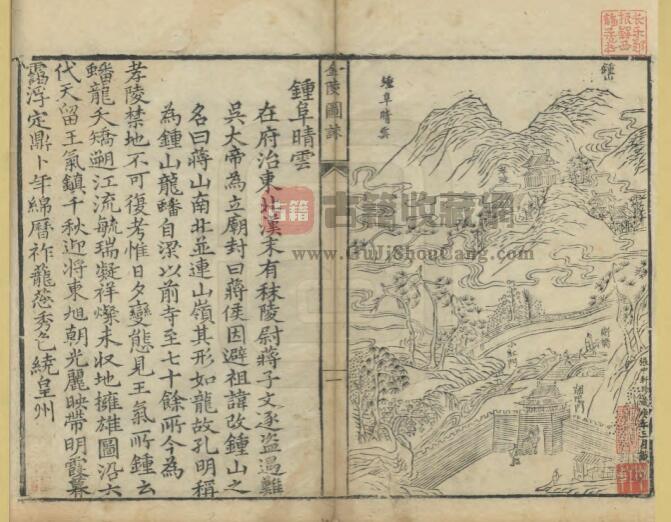 鍾山
鍾阜晴雲
小紅門
朝陽門
金陵圖詠
一
鍾阜晴雲
在府治東北漢末有秣陵尉蔣子文逐盜遇難
吳大帝為立廟封曰蔣侯因避祖諱改鍾山之
名曰蔣山南北並連山嶺其形如龍故孔明稱
為鍾山龍蟠自梁以前寺至七十餘所今為
孝陵禁地不可復考惟日夕變態見王氣所鍾云
蟠龍夭矯遡江流毓瑞凝祥燦未収地擁雄圖沿六
代天留王氣鎮千秋迎將東旭朝光麗映帶明霞暮
靄浮定鼎卜年綿曆祚蘢蔥秀色繞皇州
古籍
古籍收藏網
www.GuJiShouCang.com